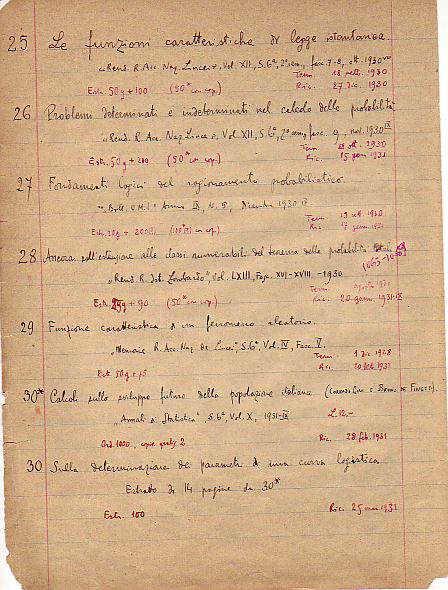 25 Le funzioni caratteristiche di legge istantanea.
"Rend. R. Acc. Naz. Lincei", Vol. XII, S. 6ª, 2º sem, fasc. 7-8, ott. 1930
Term. 18 sett. 1930
Estr. 50g + 100 (50 con cop.) Ric. 27 dic. 1930
26 Problemi determinati e indeterminati nel calcolo delle probabilità
"Rend. R. Acc. Naz. Lincei", Vol. XII, S. 6ª, 2º sem, fasc. 9, nov. 1930 IX
Term. ott. 1930
Estr. 50g + 200 (50 con cop.) Ric. 15 genn 1931
27 Fondamenti logici del ragionamento probabilistico.
"Boll. U.M.I." Anno IX, N. 5, Dicembre 1930 IX
Term. 1930
Estr. 20g + 200 (100 con cop.) Ric. 7 genn. 1931
28 Ancora sull'estensione alle classi numerabili del teorema delle probabilità totali
"Rend. R. Ist. Lombardo", Vol. LXIII, Fasc. XVI-XVIII - 1930
Term. agosto
Estr. + 90 (50 con cop.) Ric. 20 genn. 1931-IX
29 Funzione caratteristica di un fenomeno aleatorio.
"Memorie R. Acc. Naz. dei Lincei" S. 6ª, Vol. IV, Fasc. V.
Term. 1 dic 1928
Estr. 50g + 15 Ric. 1931
30* Calcoli sullo sviluppo futuro della popolazione italiana (Corrado Gini e Bruno de Finetti).
"Annali di Statistica", S. 6ª, Vol. X, 1931-IX L. 12.-
Ord. 1000, copie 2 Ric. 28 feb. 1931
30 Sulla determinazione dei parametri di una curva logistica
Estratto di 14 pagine da 30*
Estr. 100 Ric. 25 mar 1931